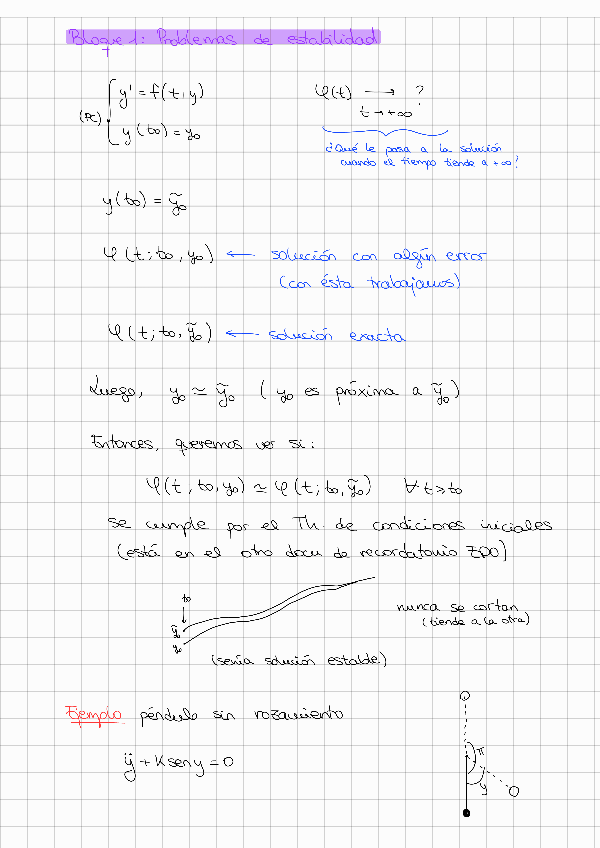 Bloque 1: Problemas de estabilidad
(PC) { y' = f(t, y)
y(t₀) = y₀
φ(t) → ?
t → +∞
¿Qué le pasa a la solución
cuando el tiempo tiende a +∞?
y(t₀) = ỹ₀
φ(t; t₀, y₀) ← solución con algún error
(con ésta trabajamos)
φ(t; t₀, ỹ₀) ← solución exacta
Luego, y₀ ≃ ỹ₀ (y₀ es próxima a ỹ₀)
Entonces, queremos ver si:
φ(t, t₀, y₀) ≃ φ(t; t₀, ỹ₀) ∀ t > t₀
se cumple por el Th. de condiciones iniciales
(está en el otro docu de recordatorio EDO)
t₀
ỹ₀
y₀
nunca se cortan
(tiende a la otra)
(sería solución estable)
Ejemplo péndulo sin rozamiento
ÿ + K sen y = 0
π
y